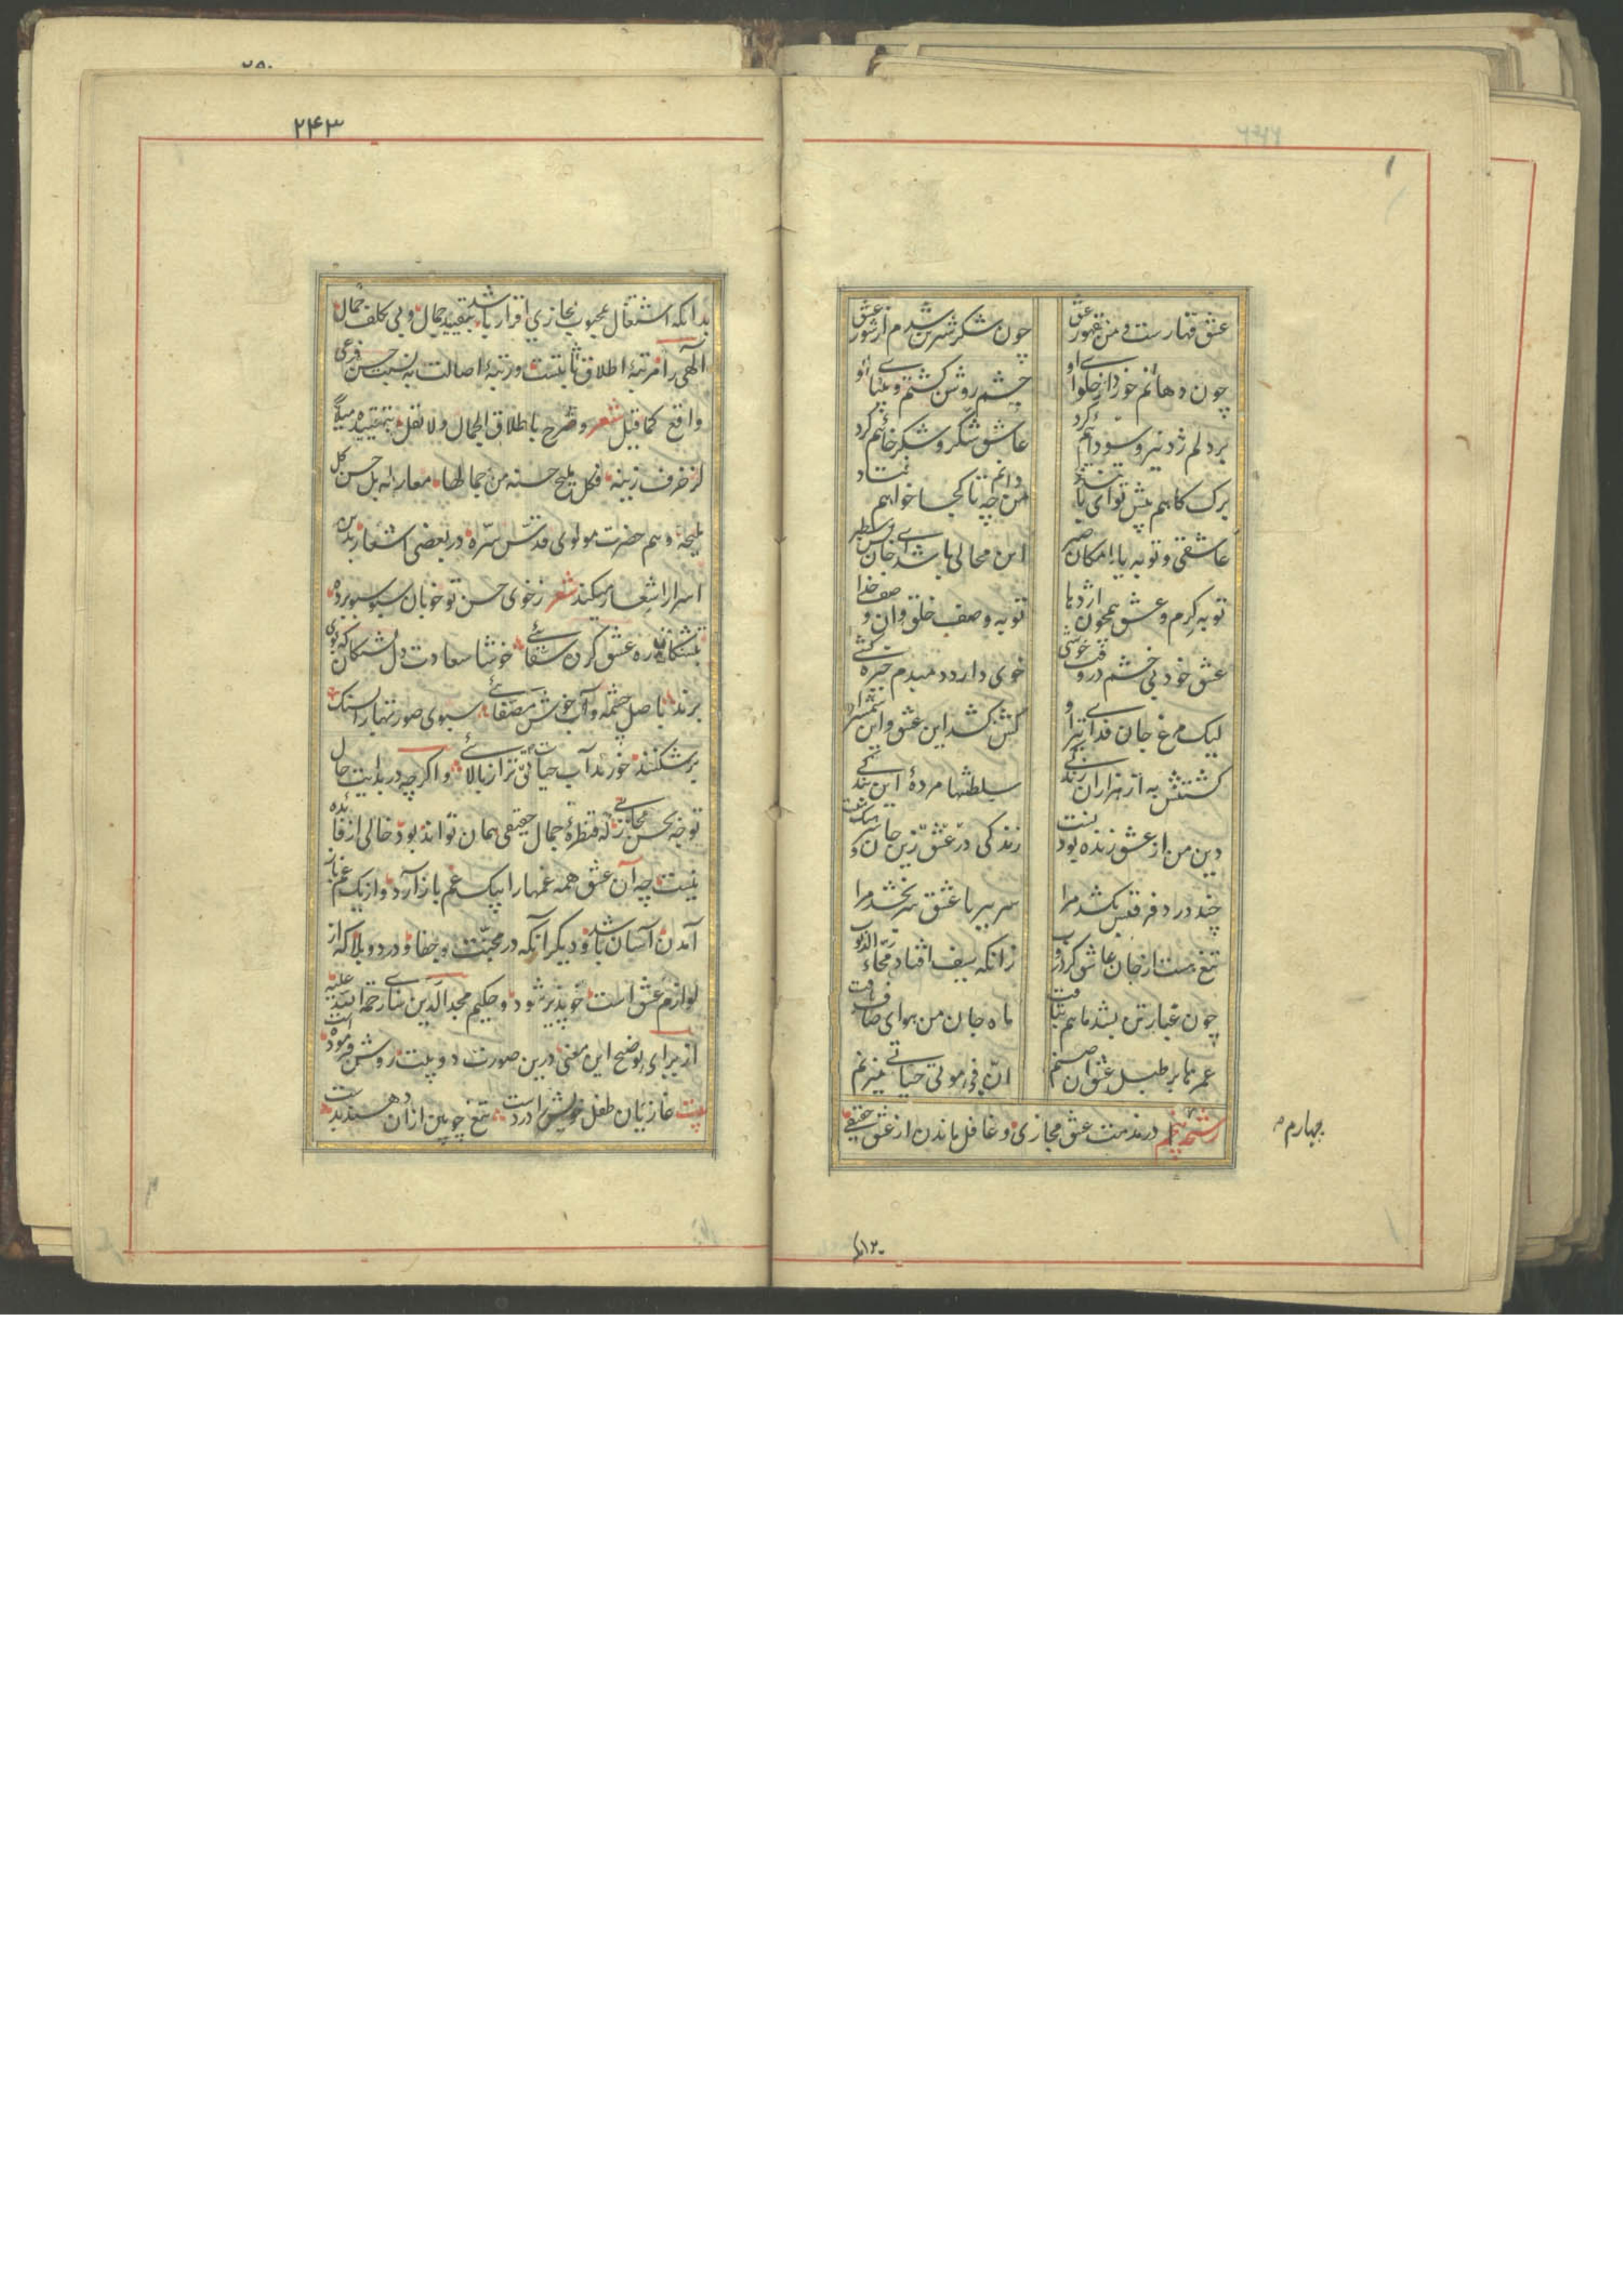 عشق قهارست و من مقهور عشق چون شکر شیرین شدم از شور عشق
چون دهانم خورد از حلوای او چشم روشن گشتم و بینای او
برد لم زد تیر و سوداییم کرد عاشق شکر و شکر خاییم کرد
برک کاهم پیش تو ای تند باد من چه دانم تا کجا خواهم فتاد
عاشقی و توبه یا امکان صبر این محالی باشد ای جان بس سطبر
توبه کرم و عشق همچون اژدها توبه وصف خلق و آن وصف خدا
عشق خود بی خشم در وقت خوشی خوی دارد دمبدم خیره کشی
لیک مرغ جان فدای تیر او کش کشد این عشق و این شمشیر او
کشتنش به از هزاران زندکی سلطنتها مرده این بندکی
دین من از عشق زنده بودنست زندکی در عشق زین جان و سر
چند درد فرقتش بکشد مرا سر ببر با عشق سر بخشد مرا
تیغ هست از جان عاشق کرد روب زانکه سیف افتاد محاء الذنوب
چون غبار تن بشد ماهم بتافت ماه جان من هوای صاف یافت
عمرها بر طبل عشق ای صنم ان فی موتی حیاتی میزنم
رشحه پنجم در مذمت عشق مجازی و غافل ماندن از عشق حقیقی
چهارم
۲۴۳
بدانکه اشتغال بمحبوب مجازی اقرار باشد بتقیید جمال و بی تکلف جمال
الهی را مرتبه اطلاق ثابتست و رتبه اصالت به نسبت حسن فرعی
واقع کما قیل شعر و صرح باطلاق الجمال ولا تقل بتقییده میلا
لزخرف زینه فکل ملیح حسنه من جمالها معار له بل حسن کل
ملیحة و هم حضرت مولوی قدس سره در بعضی اشعار بدین
اسرار اشعار میکند شعر ز خوی حسن تو خوبان سبو سبو برده
تشنکان ره عشق کرن سقائی خوشا سعادت دل تشنکان که بوی
برند باصل چشمه و آب خوش مصفائی سبوی صورتها را بسنک
بر شکنند خورند آب حیات تو از بالائی و اکرچه در بدایت حال
توجه بحسن مجازی که قنطره جمال حقیقی همان تواند بود خالی از فائده
نیست چه آن عشق همه غمها را بیک غم باز آرد و از یک غم باز
آمدن آسان باشد و دیکر آنکه در محبت بجفا و درد و بلا که از
لوازم عشق است خوپذیر شود و حکیم مجدالدین سنائی رحمة الله علیه
از برای توضیح این معنی درین صورت دو بیت روشن فرموده است
بیت غازیان طفل خویش را درد ست تیغ چوبین از آن دهند بدست